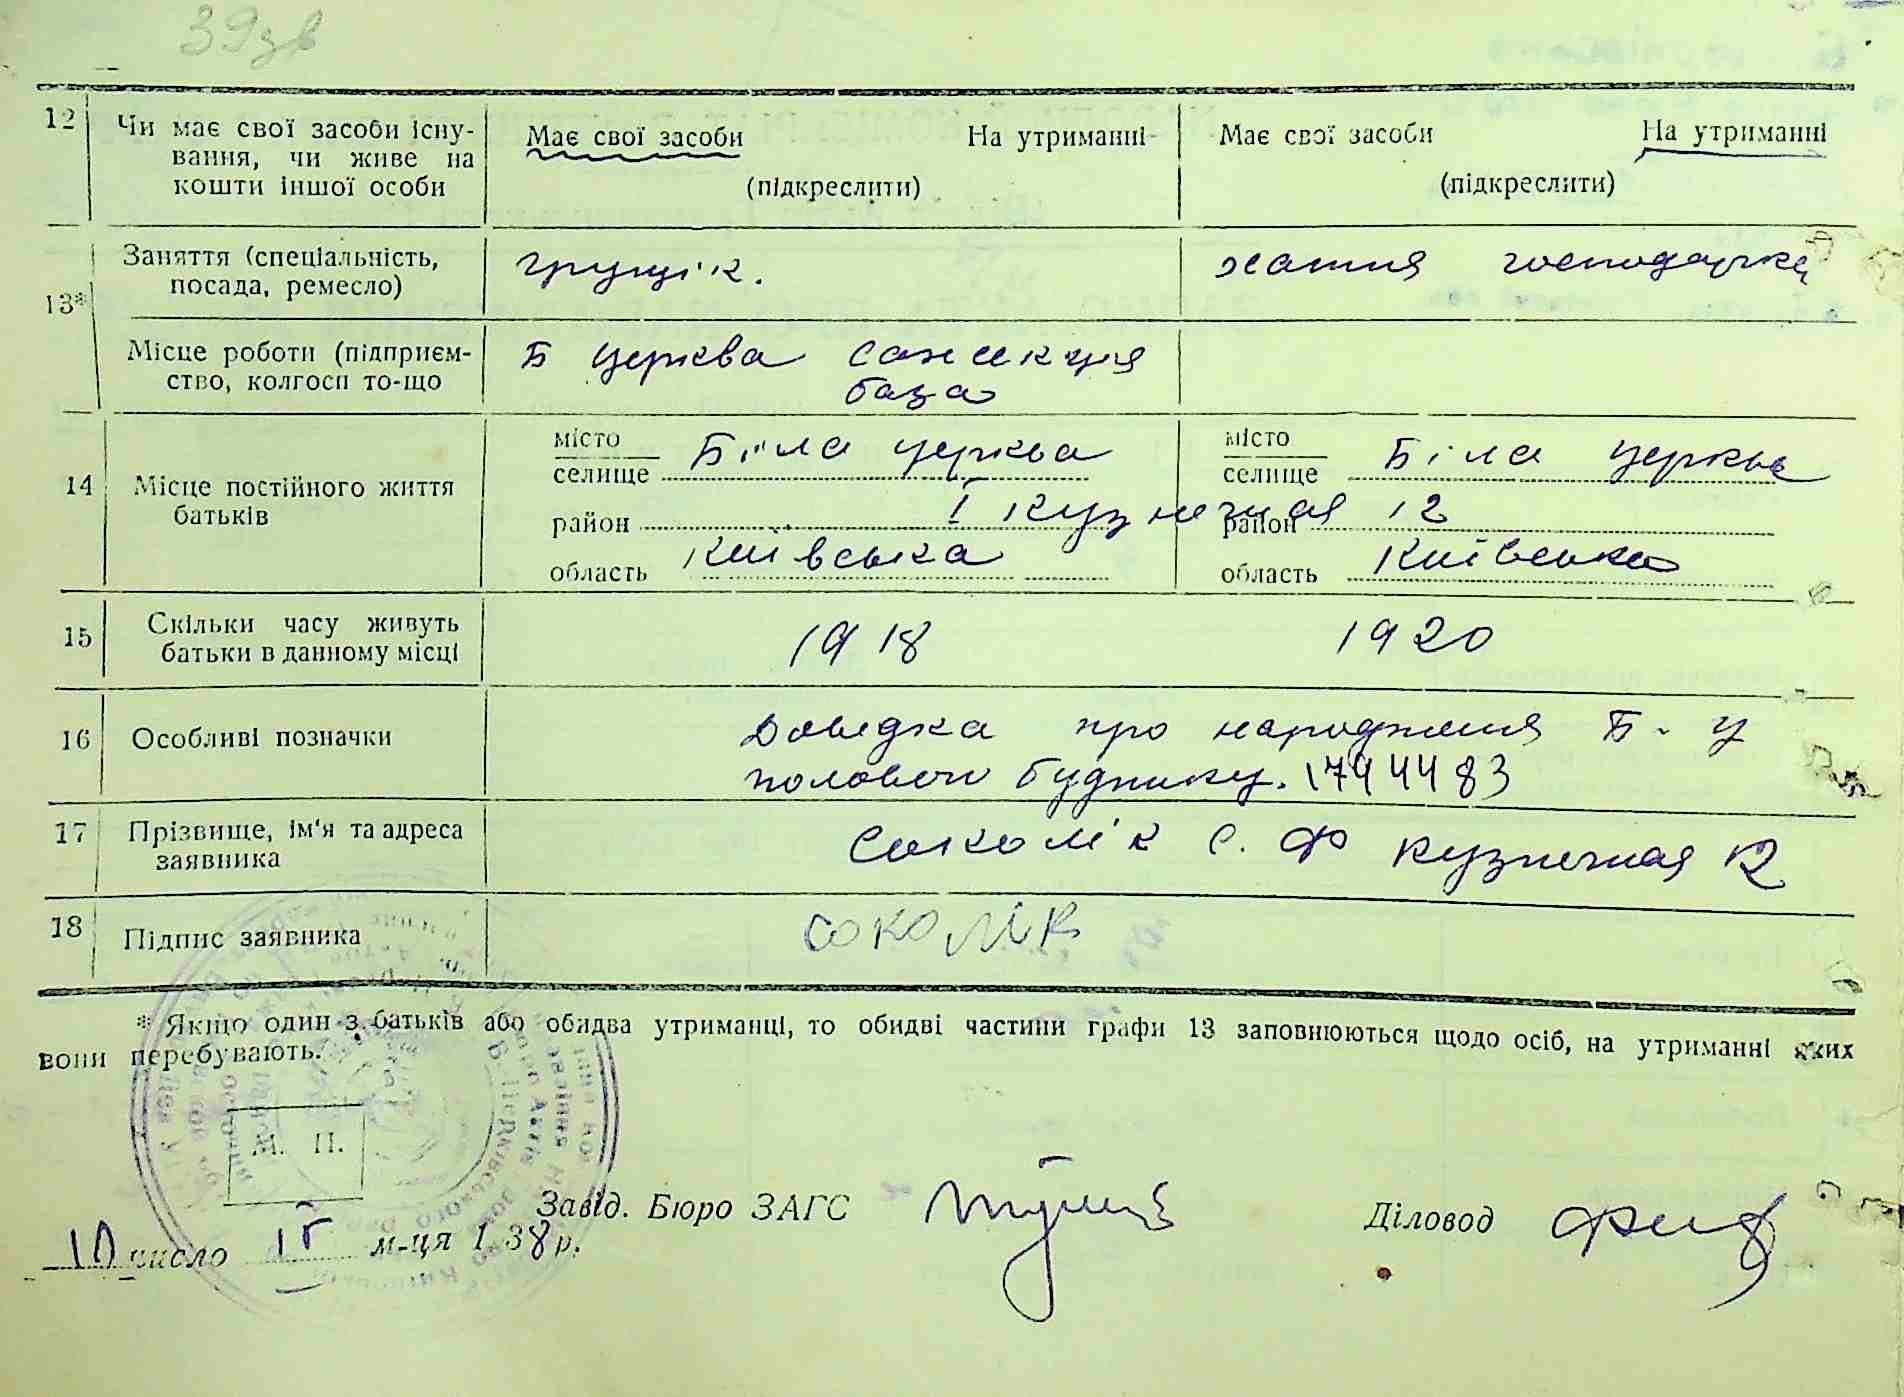 39зв
12 Чи має свої засоби існу-
вання, чи живе на
кошти іншої особи
Має свої засоби На утриманні
(підкреслити)
Має свої засоби На утриманні
(підкреслити)
13* Заняття (спеціальність,
посада, ремесло)
грущік.
хатня господарка
Місце роботи (підприєм-
ство, колгосп то-що
Б церква
база
14 Місце постійного життя
батьків
місто
селище Біла церква
район І Кузнечная 12
область Київська
місто
селище Біла церква
район
область Київська
15 Скільки часу живуть
батьки в данному місці
1918
1920
16 Особливі позначки
Довідка про народження Б. Ц
полового будинку. 1794483
17 Прізвище, ім'я та адреса
заявника
Соколік С. Ф Кузнечная 12
18 Підпис заявника
Соколік
* Якщо один з батьків або обидва утриманці, то обидві частини графи 13 заповнюються щодо осіб, на утриманні яких
вони перебувають.
М. П.
Завід. Бюро ЗАГС
Діловод
10 число м-ця 1 38 р.